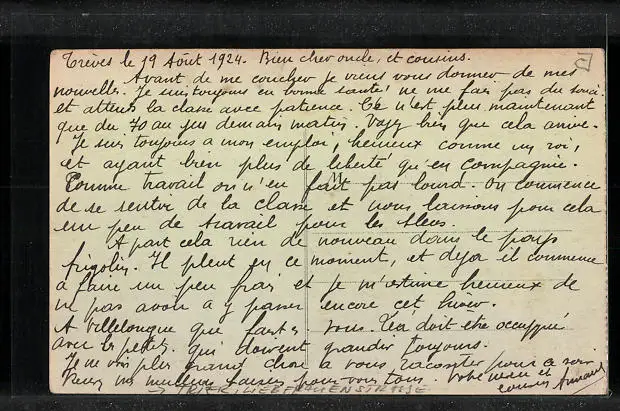 Trèves le 19 Août 1924. Bien cher oncle, et cousins.
Avant de me coucher je viens vous donner de mes
nouvelles. Je suis toujours en bonne santé ne me fais pas du souci
et attends la classe avec patience. Ce n'est plus maintenant
que du 70 au jus demain matin. Voyez bien que cela arrive.
Je suis toujours a mon emploi, heureux comme un roi,
et ayant bien plus de liberté qu'en compagnie.
Comme travail on n'en fait pas lourd. On commence
de se sentir de la classe et nous laissons pour cela
un peu de travail pour les bleus.
A part cela rien de nouveau dans le pays
frigolin. Il pleut en ce moment, et deja il commence
a faire un peu frais et je m'estime heureux de
ne pas avoir a y passer encore cet hiver.
A Villelongue que faites vous. Léa doit être occuppée
avec les petits qui doivent grandir toujours.
Je ne vois plus grand chose a vous raconter pour ce soir
Recevez mes meilleurs baisers pour vous tous. Votre neveu et
cousin Armand
TRIER, LIEBFRAUENSTRASSE